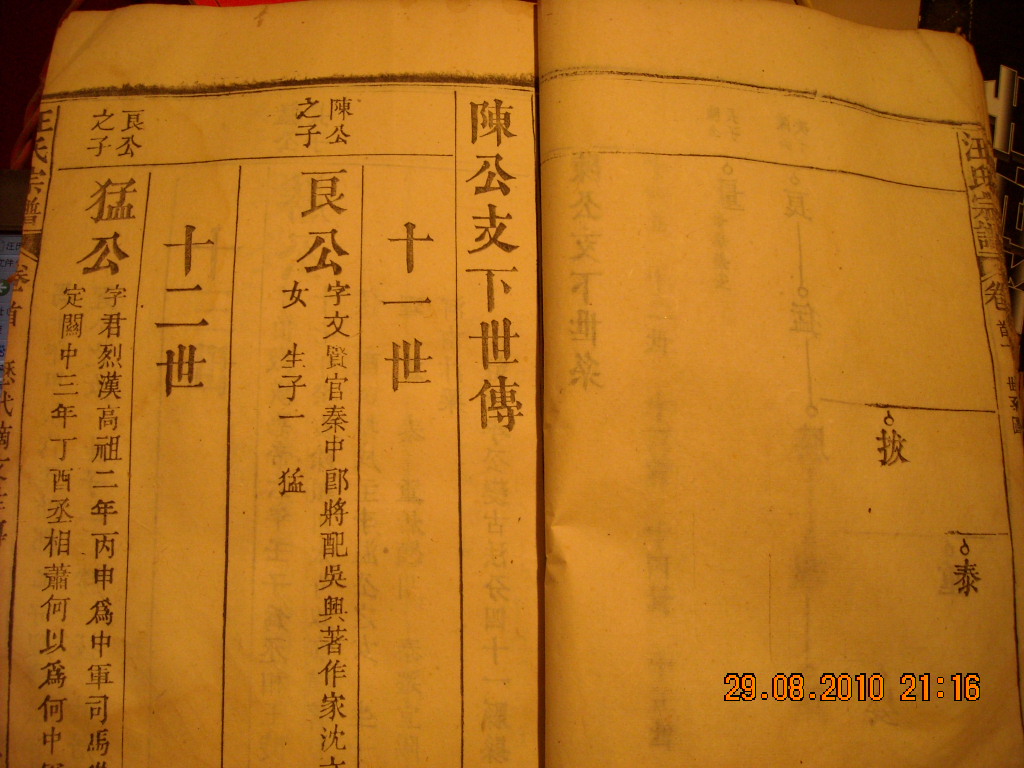 汪氏宗譜
卷
首
披
泰
陳公支下世傳
十一世
陳公
之子
艮公
字文賢官秦中郎將配吳興著作家沈
女 生子一 猛
十二世
艮公
之子
猛公
字君烈漢高祖二年丙申爲中軍司馬
定關中三年丁酉丞相蕭何以爲何中
氏宗譜
卷首
29.08.2010 21:16